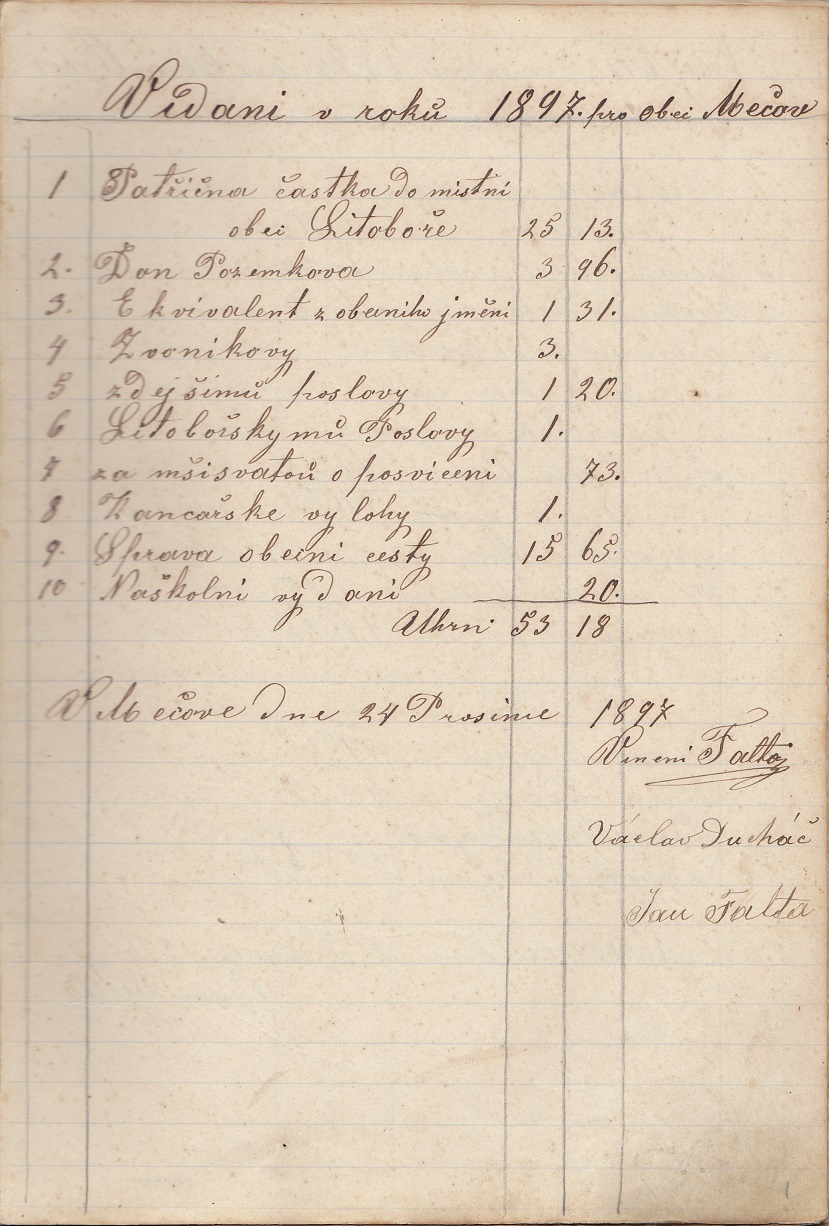 Vidani v roků 1897. pro obci Mečov
1 Patřična častka do mistni
obci Litoboře 25 13.
2. Dan Pozemkova 3 96.
3. Ekvivalent z obeniho jměni 1 31.
4 Zvonikovy 3.
5 zdejšimů poslovy 1 20.
6 Litobořskymů Poslovy 1.
7 za mšisvatoů o posviceni 73.
8 Kancařske vylohy 1.
9. Sprava obecni cesty 15 65.
10 Naškolni vydani 20.
Uhrn 53 18
V Mečove dne 24 Prosince 1897
Falta
Václav Ducháč
Jan Falta